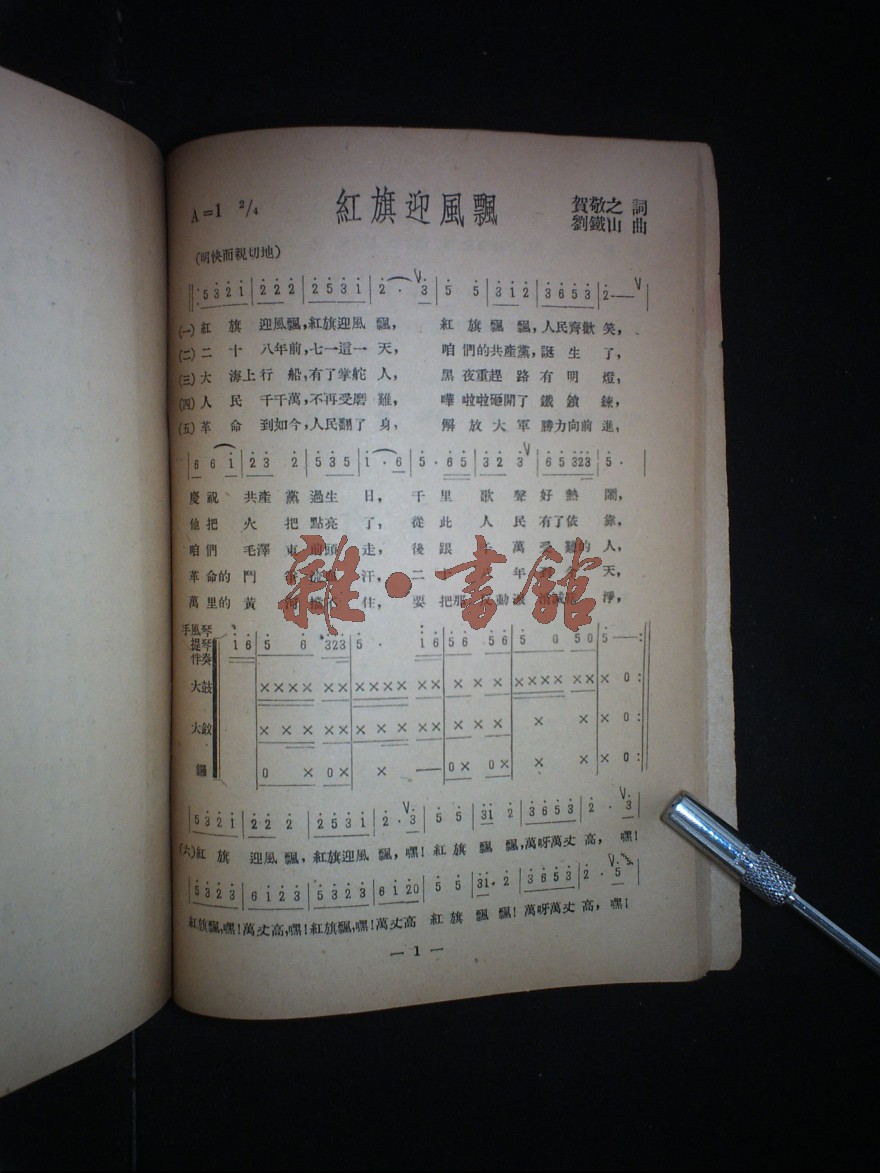 A=1 2/4
紅旗迎風飄
賀敬之 詞
劉鐵山 曲
(明快而親切地)
5 3 2 1 | 2 2 2 | 2 5 3 1 | 2 · 3 | 5 5 | 3 1 2 | 3 6 5 3 | 2 — |
(一) 紅旗迎風飄,紅旗迎風飄, 紅旗飄飄,人民齊歡笑,
(二) 二十八年前,七一這一天, 咱們的共產黨,誕生了,
(三) 大海上行船,有了掌舵人, 黑夜重趕路有明燈,
(四) 人民千千萬,不再受磨難, 嘩啦啦砸開了鐵鎖鍊,
(五) 革命到如今,人民翻了身, 解放大軍勝力向前進,
6 6 1 | 2 3 2 | 5 3 5 | 1 · 6 | 5 · 6 5 | 3 2 3 | 6 5 323 | 5 ·
慶祝共產黨過生日, 千里歌聲好熱鬧,
他把火把點亮了, 從此人民有了依靠,
咱們毛澤東前頭走, 後跟 萬受 的人,
革命的鬥 汗, 二 年 天,
萬里的黃河擋 住, 要把那 動 淨,
雜·書館
手風琴
提琴
伴奏
1 6 | 5 6 323 | 5 · 1 6 | 5 6 5 6 | 5 0 5 0 | 5 — :
大鼓 ×××× ×× | ×××× ×× | × × × × | ×××× ×× | × 0 :
大鈸 × × × × × | × × × × × × | × × × × | × × | × 0 :
鑼 0 × 0 × | × — | 0 × 0 × | × × | × 0 :
5 3 2 1 | 2 2 2 | 2 5 3 1 | 2 · 3 | 5 5 | 31 2 | 3 6 5 3 | 2 · 3
(六) 紅旗迎風飄,紅旗迎風飄,嘿!紅旗飄飄,萬呀萬丈高,嘿!
5 3 2 3 | 6 1 2 3 | 5 3 2 3 | 6 1 20 | 5 5 | 31 · 2 | 3 6 5 3 | 2 · 5
紅旗飄,嘿!萬丈高,嘿!紅旗飄,嘿!萬丈高 紅旗飄飄!萬呀萬丈高,嘿!
— 1 —